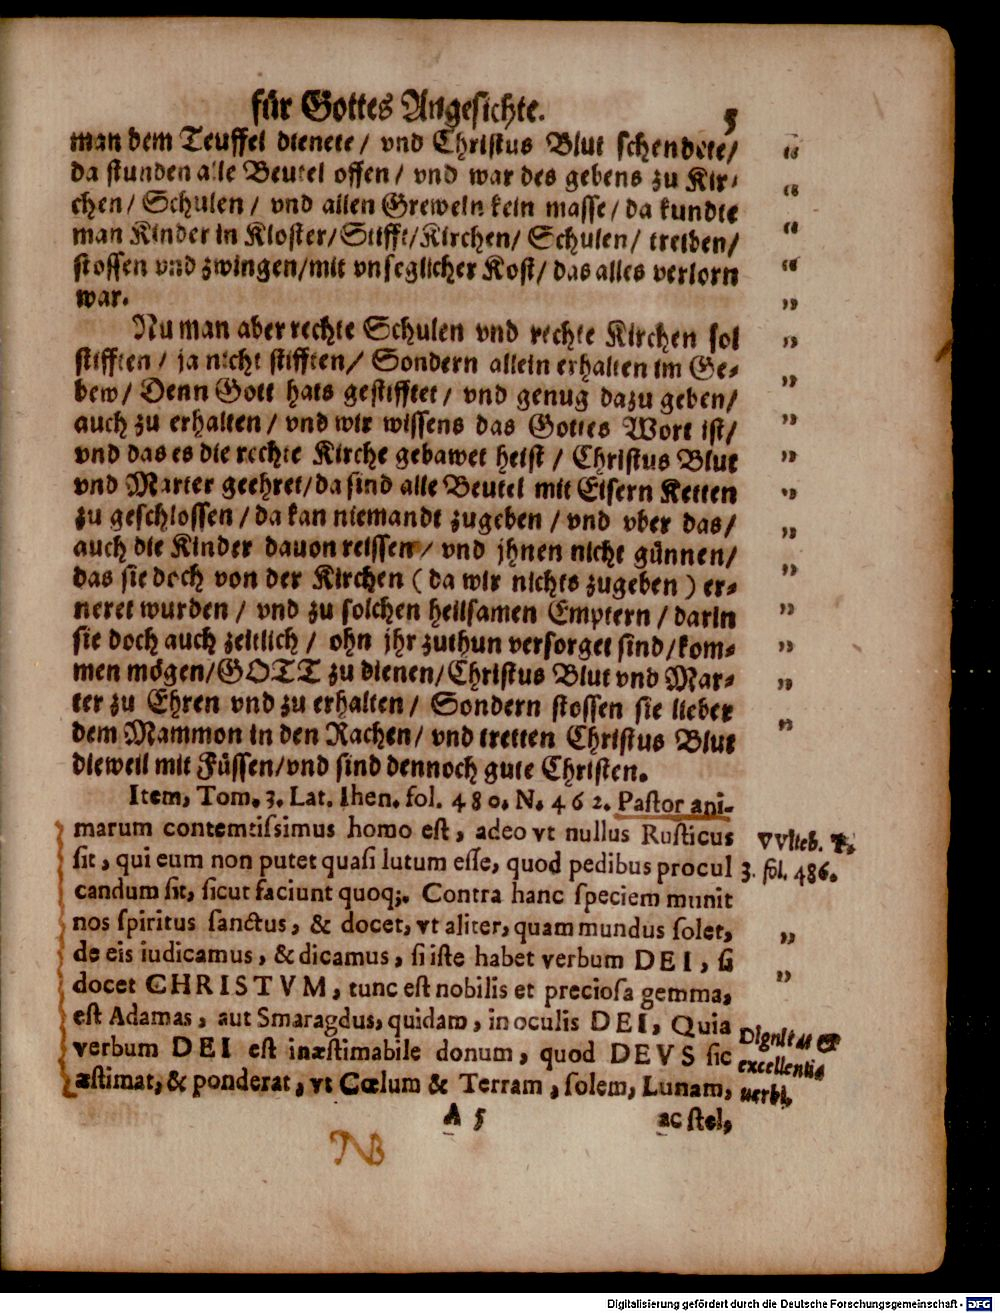 für Gottes Angesichte. 5
man dem Teuffel dienete/ vnd Christus Blut schendete/
da stunden alle Beutel offen/ vnd war des gebens zu Kir-
chen/ Schulen/ vnd allen Greweln kein masse/ da kundte
man Kinder in Kloster/Stifft/Kirchen/ Schulen/ treiben/
stossen vnd zwingen/mit vnseglicher Kost/ das alles verlorn
war.
Nu man aber rechte Schulen vnd rechte Kirchen sol
stifften/ ja nicht stifften/ Sondern allein erhalten im Ge-
bew/ Denn Gott hats gestifftet/ vnd genug dazu geben/
auch zu erhalten/ vnd wir wissens das Gottes Wort ist/
vnd das es die rechte Kirche gebawet heist/ Christus Blut
vnd Marter geehret/da sind alle Beutel mit Eisern Ketten
zu geschlossen/da kan niemandt zugeben/vnd vber das/
auch die Kinder dauon reissen/ vnd jhnen nicht günnen/
das sie doch von der Kirchen (da wir nichts zugeben) er-
neret wurden/ vnd zu solchen heilsamen Emptern/darin
sie doch auch zeitlich/ ohn jhr zuthun versorget sind/kom-
men mögen/GOTT zu dienen/Christus Blut vnd Mar-
ter zu Ehren vnd zu erhalten/ Sondern stossen sie lieber
dem Mammon in den Rachen/ vnd tretten Christus Blut
dieweil mit Füssen/vnd sind dennoch gute Christen.
Item, Tom. 3. Lat. Ihen. fol. 480. N. 462. Pastor ani-
marum contemtissimus homo est, adeo vt nullus Rusticus
sit, qui eum non putet quasi lutum esse, quod pedibus procul
candum sit, sicut faciunt quoq;. Contra hanc speciem munit
nos spiritus sanctus, & docet, vt aliter, quam mundus solet,
de eis iudicamus, & dicamus, si iste habet verbum DEI, si
docet CHRISTVM, tunc est nobilis et preciosa gemma,
est Adamas, aut Smaragdus, quidam, in oculis DEI, Quia
verbum DEI est inæstimabile donum, quod DEVS sic
æstimat, & ponderat, vt Cœlum & Terram, solem, Lunam,
A 5 ac stel,
VViteb. T.
3. fol. 486.
Dignitas &
excellentia
uerbi.
NB
Digitalisierung gefördert durch die Deutsche Forschungsgemeinschaft - DFG